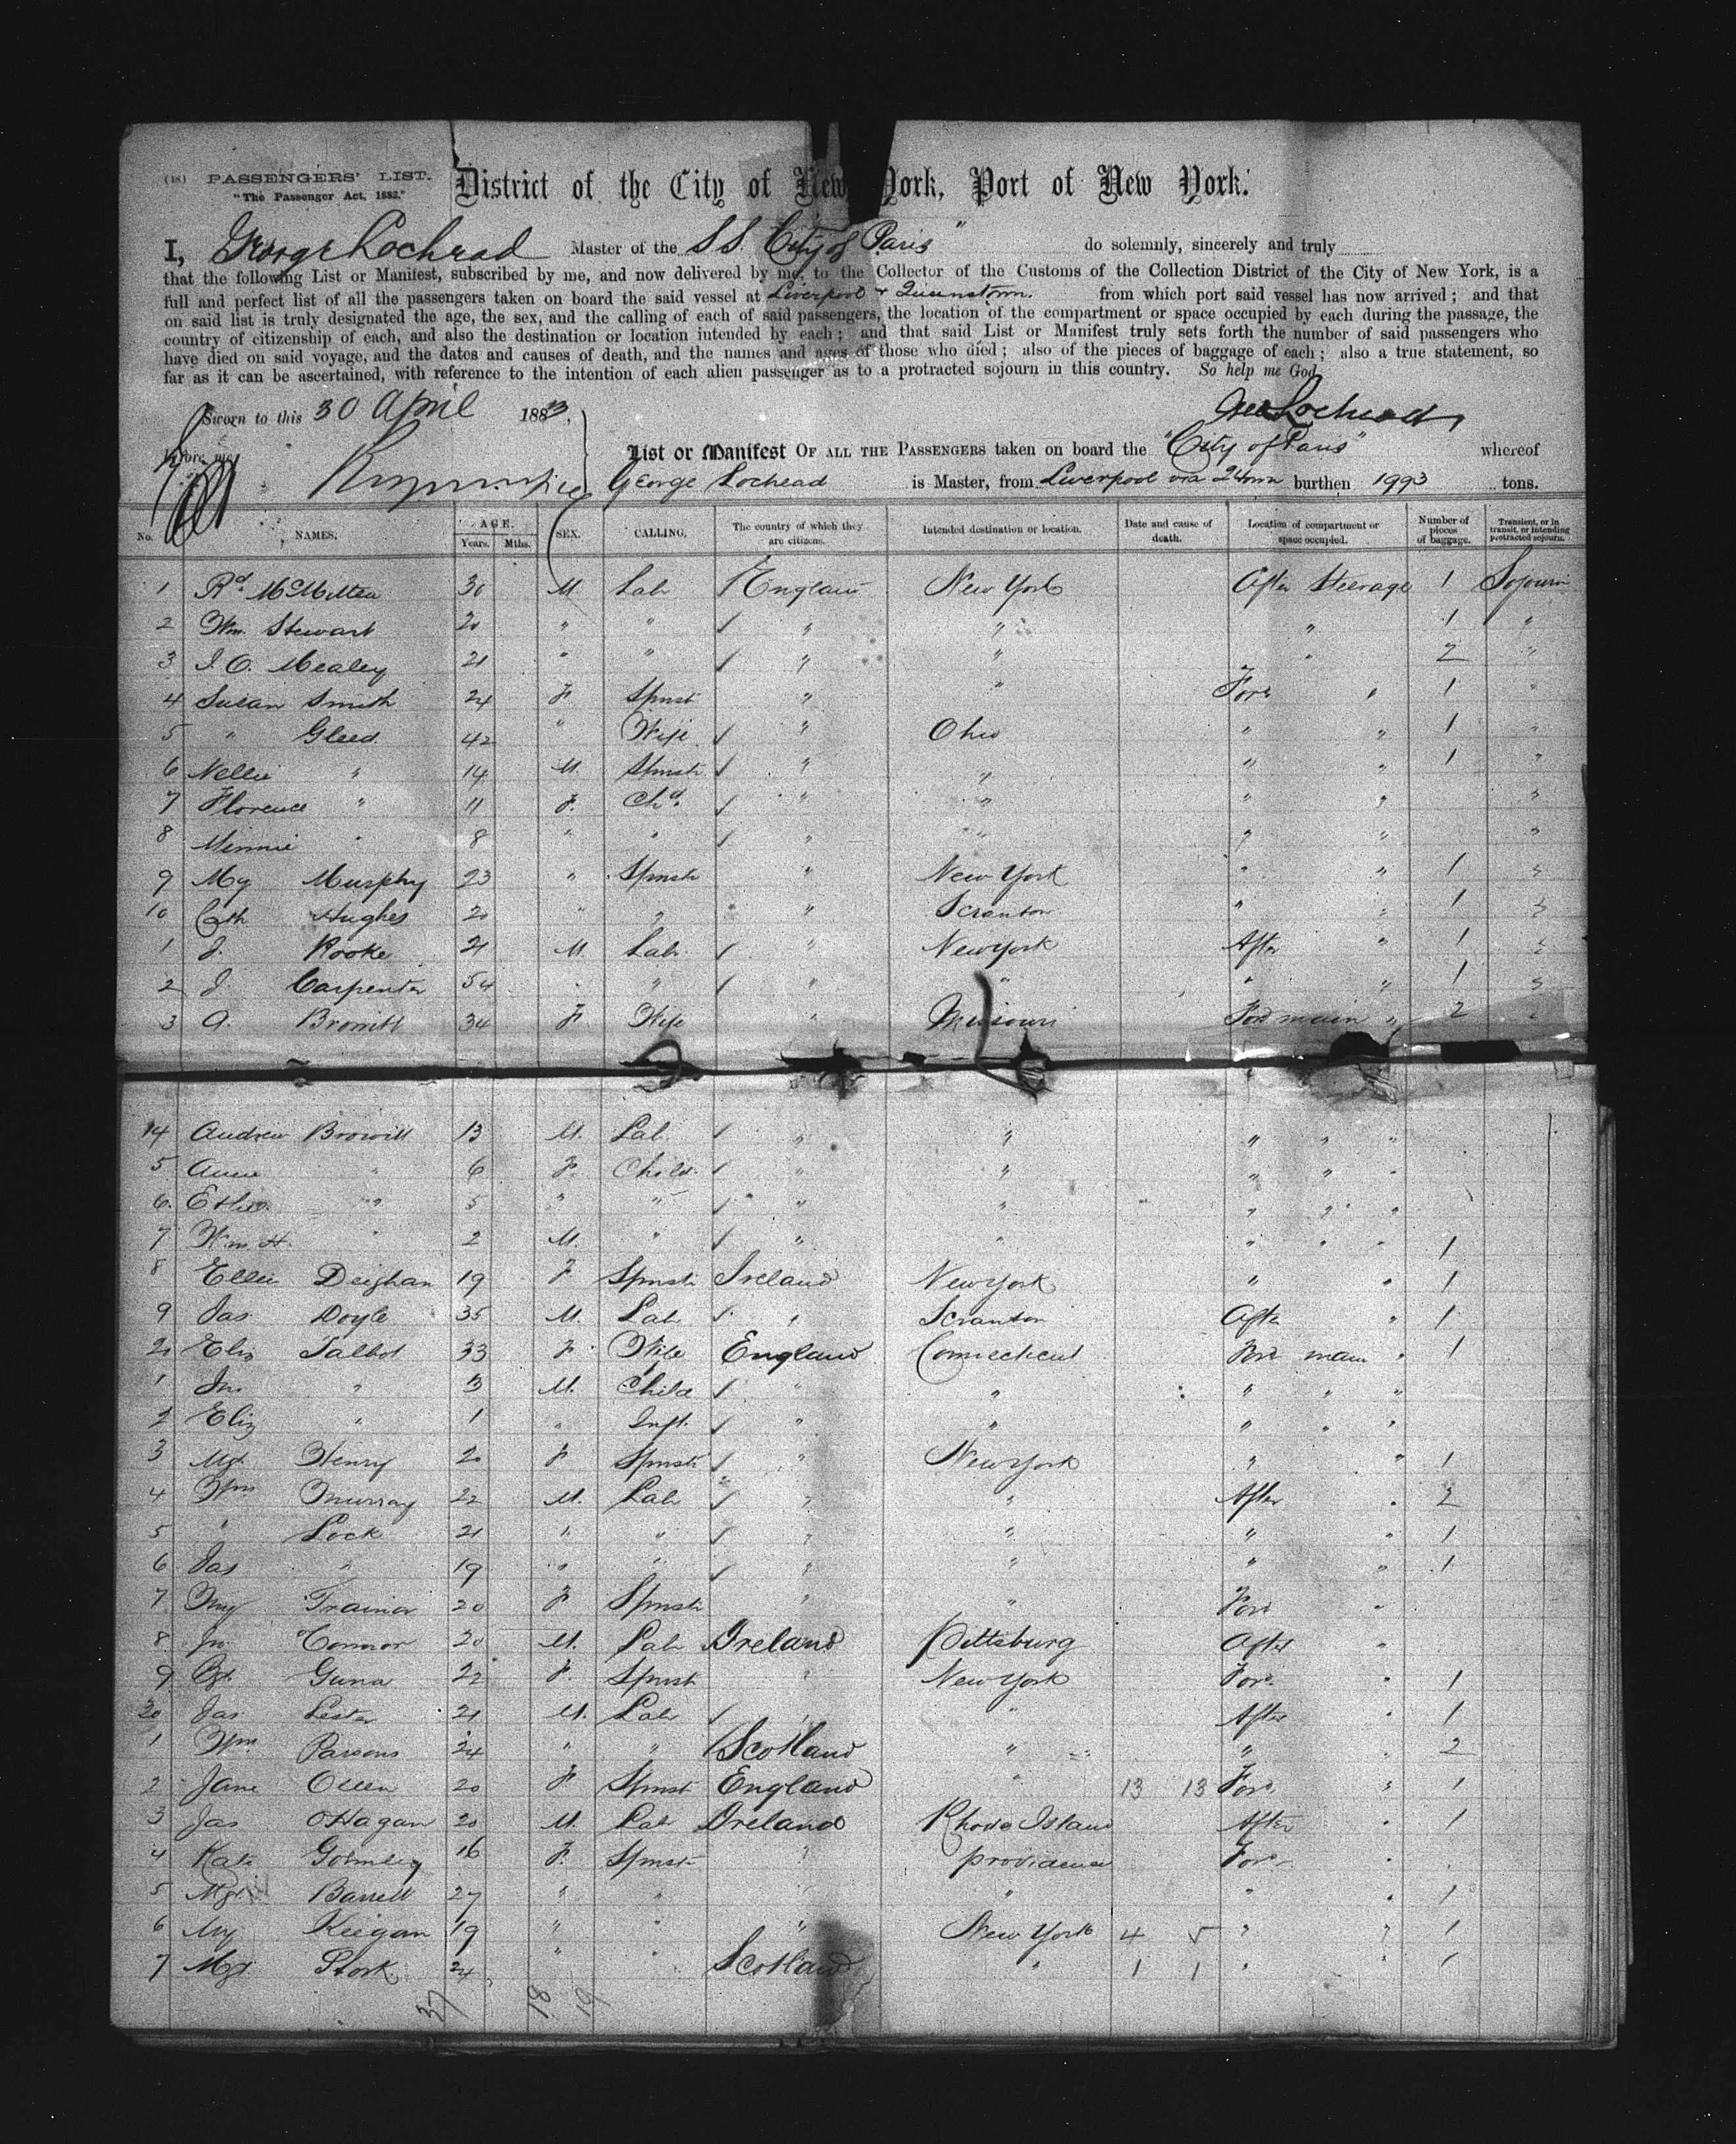 (18) PASSENGERS' LIST.
"The Passenger Act, 1882."
District of the City of New York, Port of New York.
I, George Lochead Master of the S.S. City of Paris" do solemnly, sincerely and truly
that the following List or Manifest, subscribed by me, and now delivered by me, to the Collector of the Customs of the Collection District of the City of New York, is a
full and perfect list of all the passengers taken on board the said vessel at Liverpool & Queenstown. from which port said vessel has now arrived; and that
on said list is truly designated the age, the sex, and the calling of each of said passengers, the location of the compartment or space occupied by each during the passage, the
country of citizenship of each, and also the destination or location intended by each; and that said List or Manifest truly sets forth the number of said passengers who
have died on said voyage, and the dates and causes of death, and the names and ages of those who died; also of the pieces of baggage of each; also a true statement, so
far as it can be ascertained, with reference to the intention of each alien passenger as to a protracted sojourn in this country. So help me God
Sworn to this 30 April 1883. Geo Lochead
before me
List or Manifest OF ALL THE PASSENGERS taken on board the "City of Paris" whereof
George Lochead is Master, from Liverpool via burthen 1993 tons.
No. NAMES. AGE. Years. Mths. SEX. CALLING. The country of which they are citizens. Intended destination or location. Date and cause of death. Location of compartment or space occupied. Number of pieces of baggage. Transient, or in transit, or intending protracted sojourn.
1 Rd McMillea 30 M. Lab England New York After Steerage 1 Sojourn
2 Wm. Stewart 20 " " " " " 1 "
3 J. C. Mealey 21 " " " " " 2 "
4 Susan Smith 24 F Spnst " " Fore " 1 "
5 " Gleed 42 " Wife " Ohio " " 1 "
6 Nellie " 14 M. Spnstr " " " " 1 "
7 Florence " 11 F. Chd. " " " " "
8 Minnie " 8 " " " " " " "
9 My Murphy 23 " Spnstr " New York " " 1 "
10 Cath Hughes 20 " " " Scranton " " 1 "
1 J. Rooke 21 M. Lab. " New York After " 1 "
2 J Carpenter 54 " " " " " " 1 "
3 A. Browitt 34 F Wife " Missouri Ford main " 2 "
14 Andrew Browitt 13 M. Lab. " " " " "
5 Annie " 6 F. Child. " " " " "
6. " 5 " " " " " " "
7 Wm. H. " 2 M. " " " " " " 1
8 Ellen Deighan 19 F Spnstr Ireland New York " " 1
9 Jas Doyle 35 M. Lab " Scranton After " 1
20 Eliz Talbot 33 F. Wife England Connecticut Ford main " 1
1 Jn. " 3 M. Child " " " " "
2 Eliz " 1 " Inft. " " " " "
3 Mgt. Henry 20 F Spnstr " New York " " 1
4 Wm Murray 22 M. Lab " " After " 2
5 " Lock 21 " " " " " " 1
6 Jas " 19 " " " " " " 1
7 My Trainor 20 F. Spnstr " " Ford "
8 Jn. Connor 20 M. Lab Ireland Pittsburg After "
9 Bgt. 22 F. Spnstr " New York Fore. " 1
30 Jas Lester 21 M. Lab " " After " 1
1 Wm Parsons 24 " " Scotland " " " 2
2 Jane 20 F Spnst England " 13 13 Fore. " 1
3 Jas OHagan 20 M. Lab Ireland Rhode Island After " 1
4 Kate Gormley 16 F. Spnstr " providence Fore "
5 Mgt. Barrett 27 " " " " " 1
6 My Keegan 19 " " " New York 4 5 " " 1
7 Mgt. Stork 24 " " Scotland " 1 1 " " 1
37 18 19